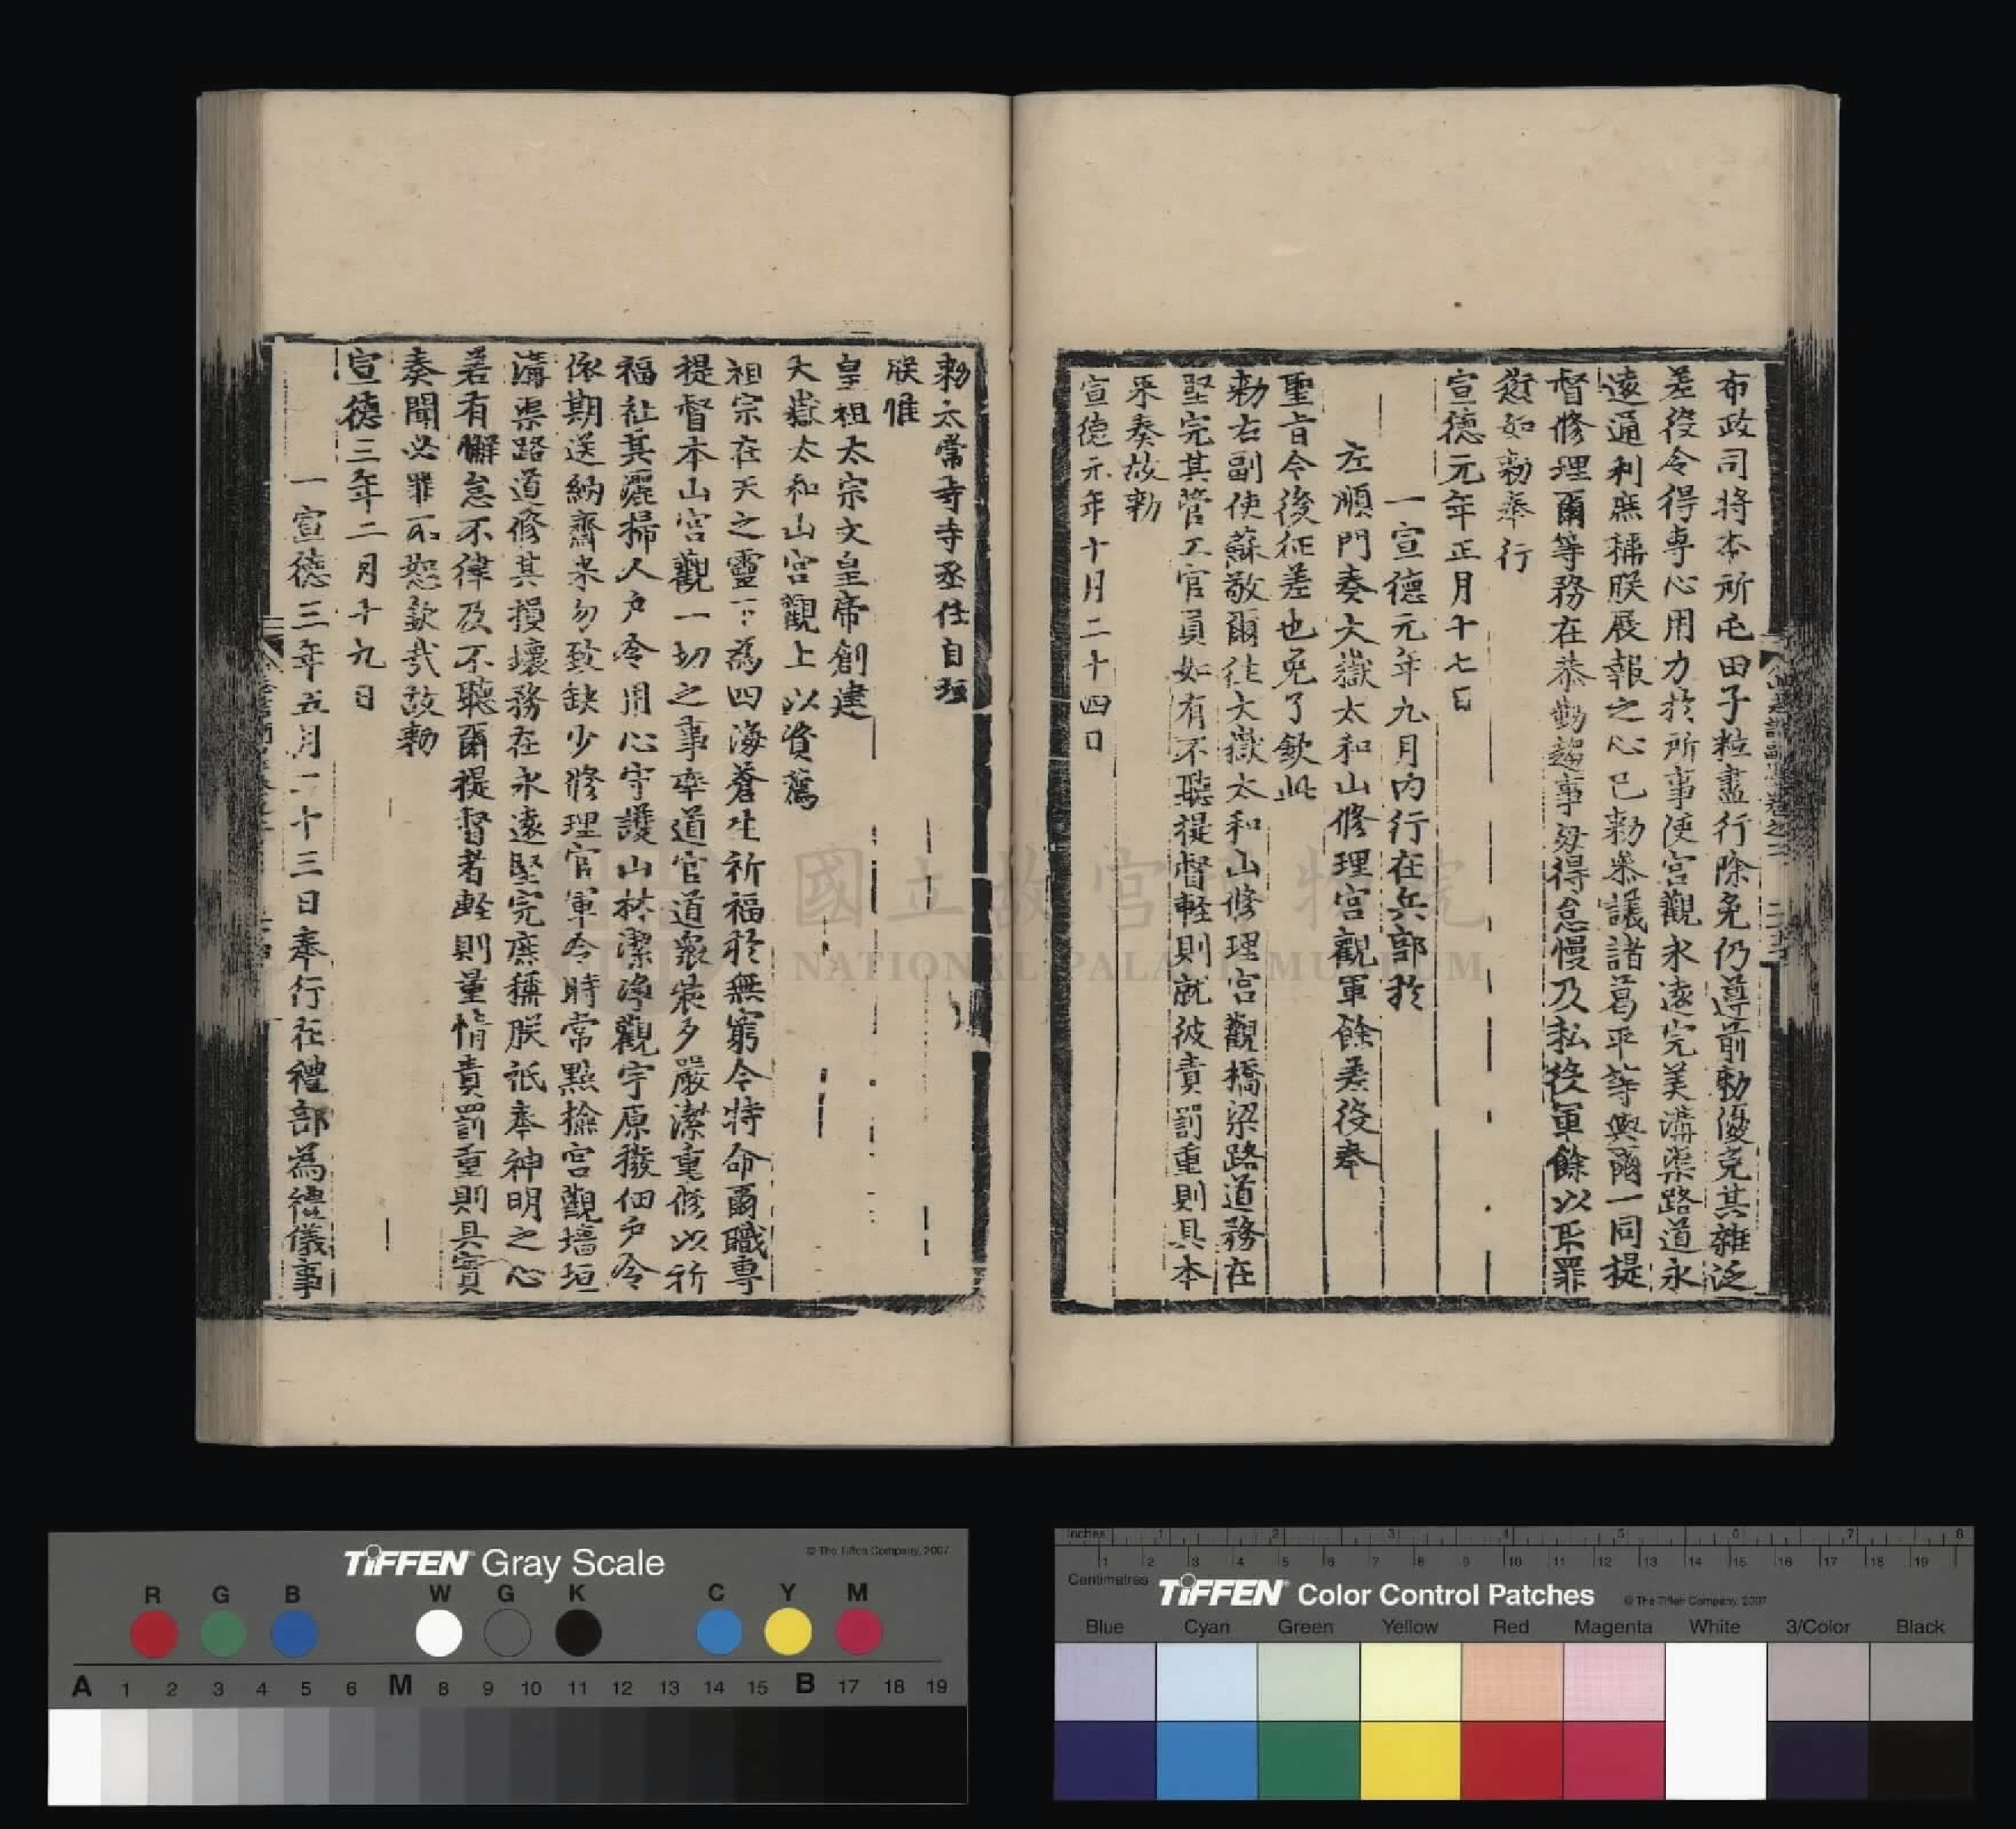 布政司將本所屯田子粒盡行除免仍遵前勑優免其雜泛
差役令得專心用力於所事使宮觀永遠完美溝渠路道永
遠通利庶稱朕展報之心已勑叅議諸葛平等與爾一同提
督修理爾等務在恭勤趨事毋得怠慢及私役軍餘以取罪
愆如勑奉行
宣德元年正月十七日
一宣德元年九月內行在兵部於
左順門奏大嶽太和山修理宮觀軍餘差役奉
聖旨今後征差也免了欽此
勑右副使蘇敬爾往大嶽太和山修理宮觀橋梁路道務在
堅完其管工官員如有不聽提督輕則就彼責罰重則具本
來奏故勑
宣德元年十月二十四日
勑太常寺寺丞任自垣
朕惟
皇祖太宗文皇帝創建
大嶽太和山宮觀上以資薦
祖宗在天之靈下為四海蒼生祈福於無窮今特命爾職專
提督本山宮觀一切之事率道官道衆裝多嚴潔熏修以祈
福祉其灑掃人户令用心守護山林潔淨觀宇原撥佃户令
依期送納齋米勿致缺少修理官軍令時常點撿宮觀墻垣
溝渠路道修其損壞務在永遠堅完庶稱朕祇奉神明之心
若有懈怠不律及不聽爾提督者輕則量情責罰重則具實
奏聞必罪不恕欽哉故勑
宣德三年二月十九日
一宣德三年五月二十三日奉行在禮部為禮儀事
國立故宮博物院
NATIONAL PALACE MUSEUM
TIFFEN Gray Scale
© The Tiffen Company, 2007
R G B W G K C Y M
A 1 2 3 4 5 6 M 8 9 10 11 12 13 14 15 B 17 18 19
Inches 1 2 3 4 5 6 7 8
1 2 3 4 5 6 7 8 9 10 11 12 13 14 15 16 17 18 19
Centimetres
TIFFEN Color Control Patches
© The Tiffen Company, 2007
Blue Cyan Green Yellow Red Magenta White 3/Color Black